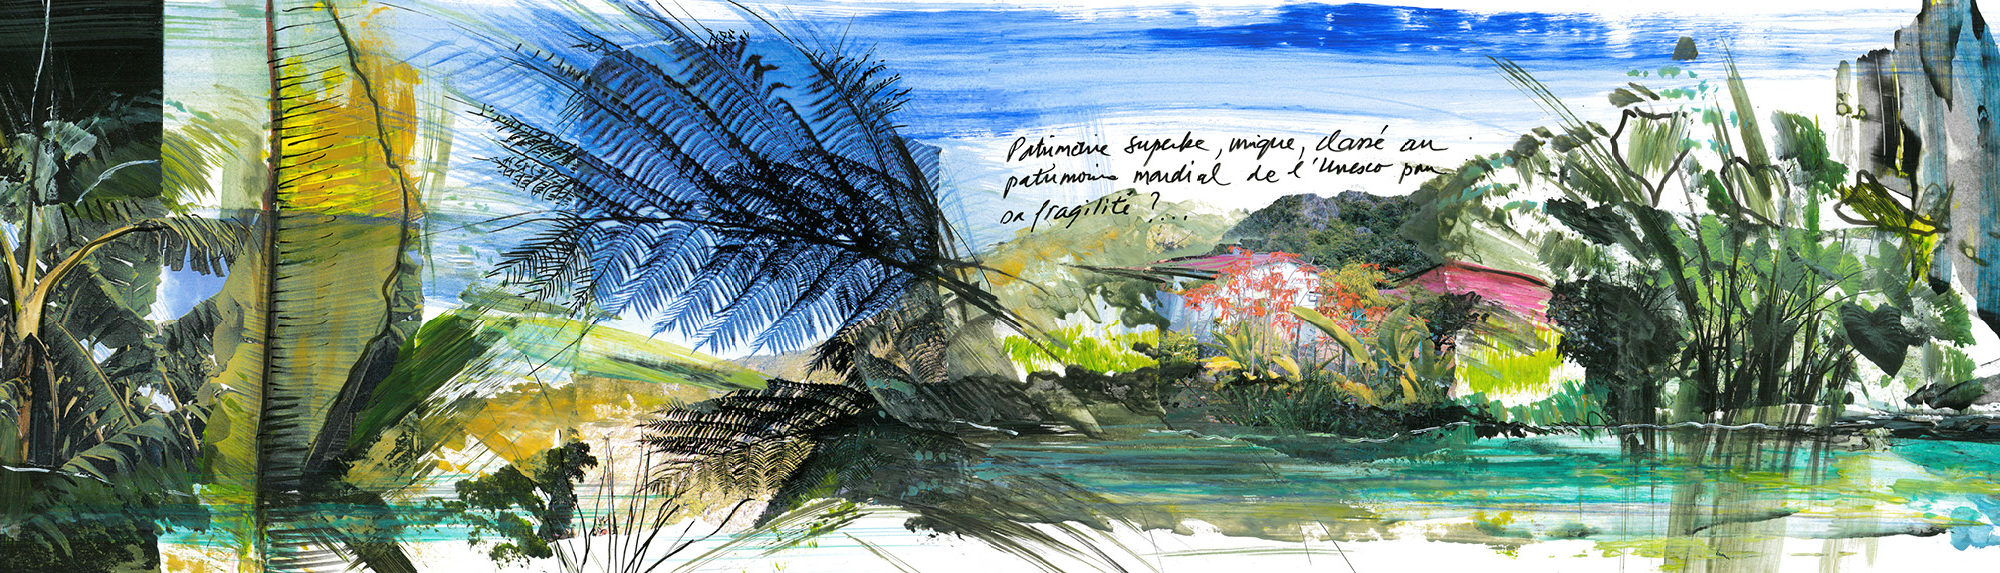 Patrimoine superbe, unique, classé au
patrimoine mondial de l'Unesco pour
sa fragilité ?...